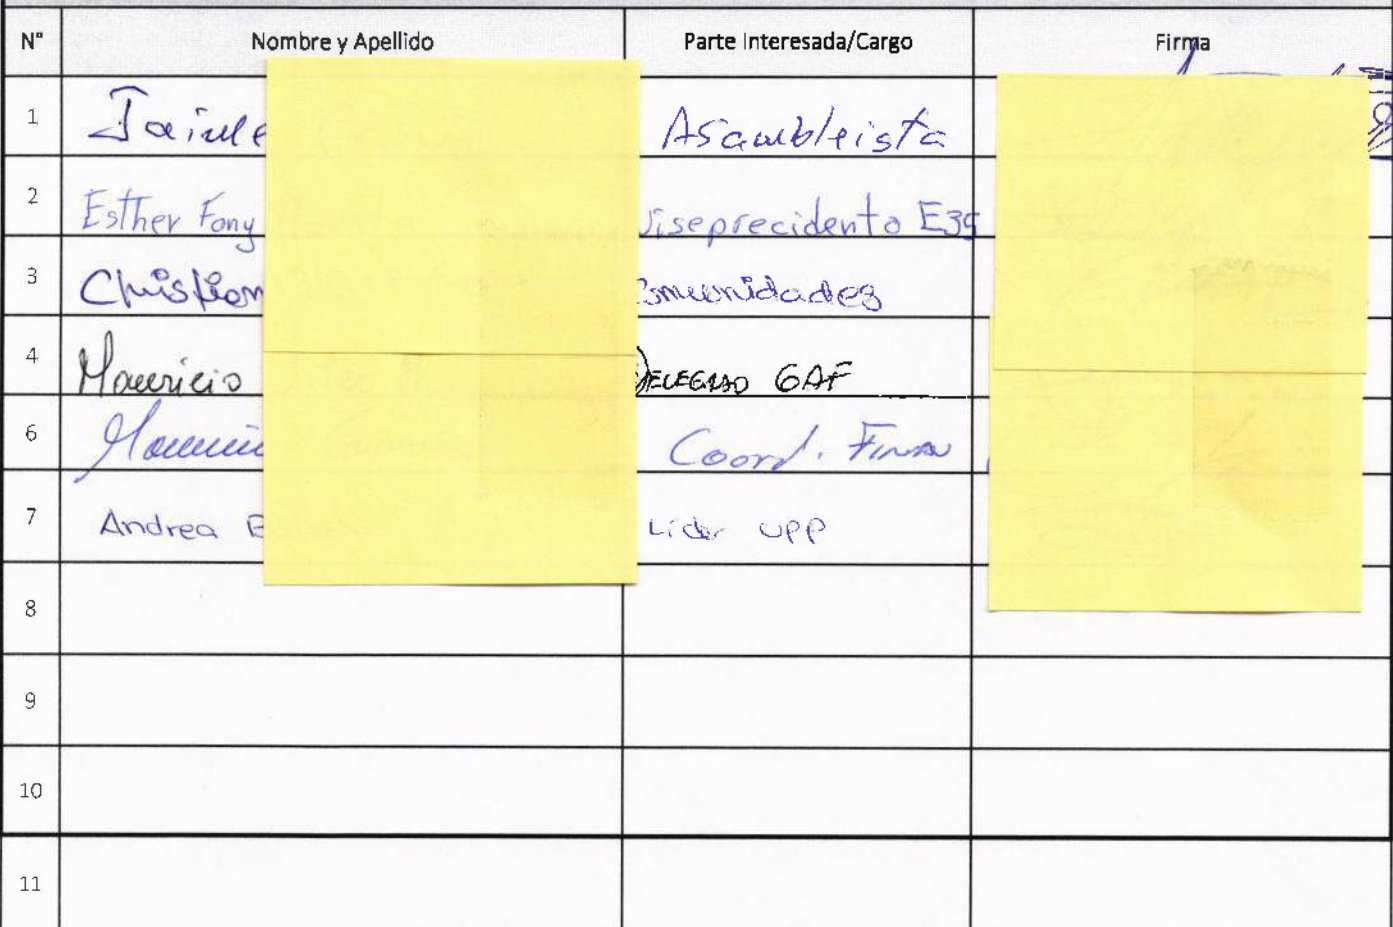 N° Nombre y Apellido Parte Interesada/Cargo Firma
1 Jaime Asambleista
2 Esther Fany Viseprecidenta E39
3 Christian Comunidades
4 Mauricio DELEGADO GAF
6 Mauricio Coord. Finan
7 Andrea Lider UPP
8
9
10
11